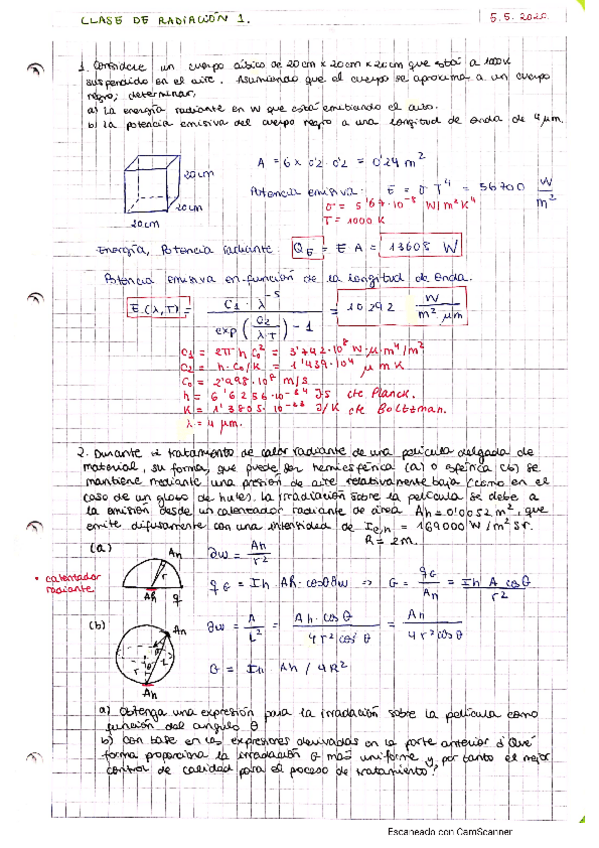 CLASE DE RADIACIÓN 1. 5.5.2020.
1. Considere un cuerpo cúbico de 20cm x 20cm x 20cm que está a 1000K
suspendido en el aire. Asumiendo que el cuerpo se aproxima a un cuerpo
negro; determinar,
a) La energía radiante en W que está emitiendo el cubo.
b) La potencia emisiva del cuerpo negro a una longitud de onda de 4 μm.
20cm
20cm
20cm
A = 6 x 0'2 · 0'2 = 0'24 m²
Potencia emisiva: E = σ T⁴ = 56700 W/m²
σ = 5'67·10⁻⁸ W/m²K⁴
T = 1000 K
Energía, Potencia radiante: Q_E = E A = 13608 W
Potencia emisiva en función de la longitud de onda.
E(λ,T) = C₁ · λ⁻⁵ / (exp(C₂/λT) - 1) = 10292 W/m² μm
C₁ = 2π h C₀² = 3'742·10⁸ W·μm⁴/m²
C₂ = h·C₀/K = 1'439·10⁴ μm K
C₀ = 2'998·10⁸ m/s
h = 6'6256·10⁻³⁴ J·s cte Planck.
K = 1'3805·10⁻²³ J/K cte Boltzman.
λ = 4 μm.
2. Durante el tratamiento de calor radiante de una película delgada de
material, su forma, que puede ser hemiesférica (a) o esférica (b) se
mantiene mediante una presión de aire relativamente baja (como en el
caso de un globo de hule). La irradiación sobre la película se debe a
la emisión desde un calentador radiante de área Ah = 0'0052 m², que
emite difusamente con una intensidad de I_e,h = 169000 W/m² sr.
R = 2m.
(a)
An
r
Ah
• calentador
radiante
∂w = An / r²
q_G = Ih · Ah · cosθ ∂w => G = q_G / An = Ih A cosθ / r²
(b)
An
r
L
An
∂w = A / L² = Ah · cosθ / 4r²cos²θ = An / 4r²cosθ
G = Ih · Ah / 4R²
a) Obtenga una expresión para la irradación sobre la película como
función del angulo θ
b) Con base en las expresiones derivadas en la parte anterior ¿Qué
forma proporciona la irradación G más uniforme y, por tanto el mejor
control de calidad para el proceso de tratamiento?
Escaneado con CamScanner